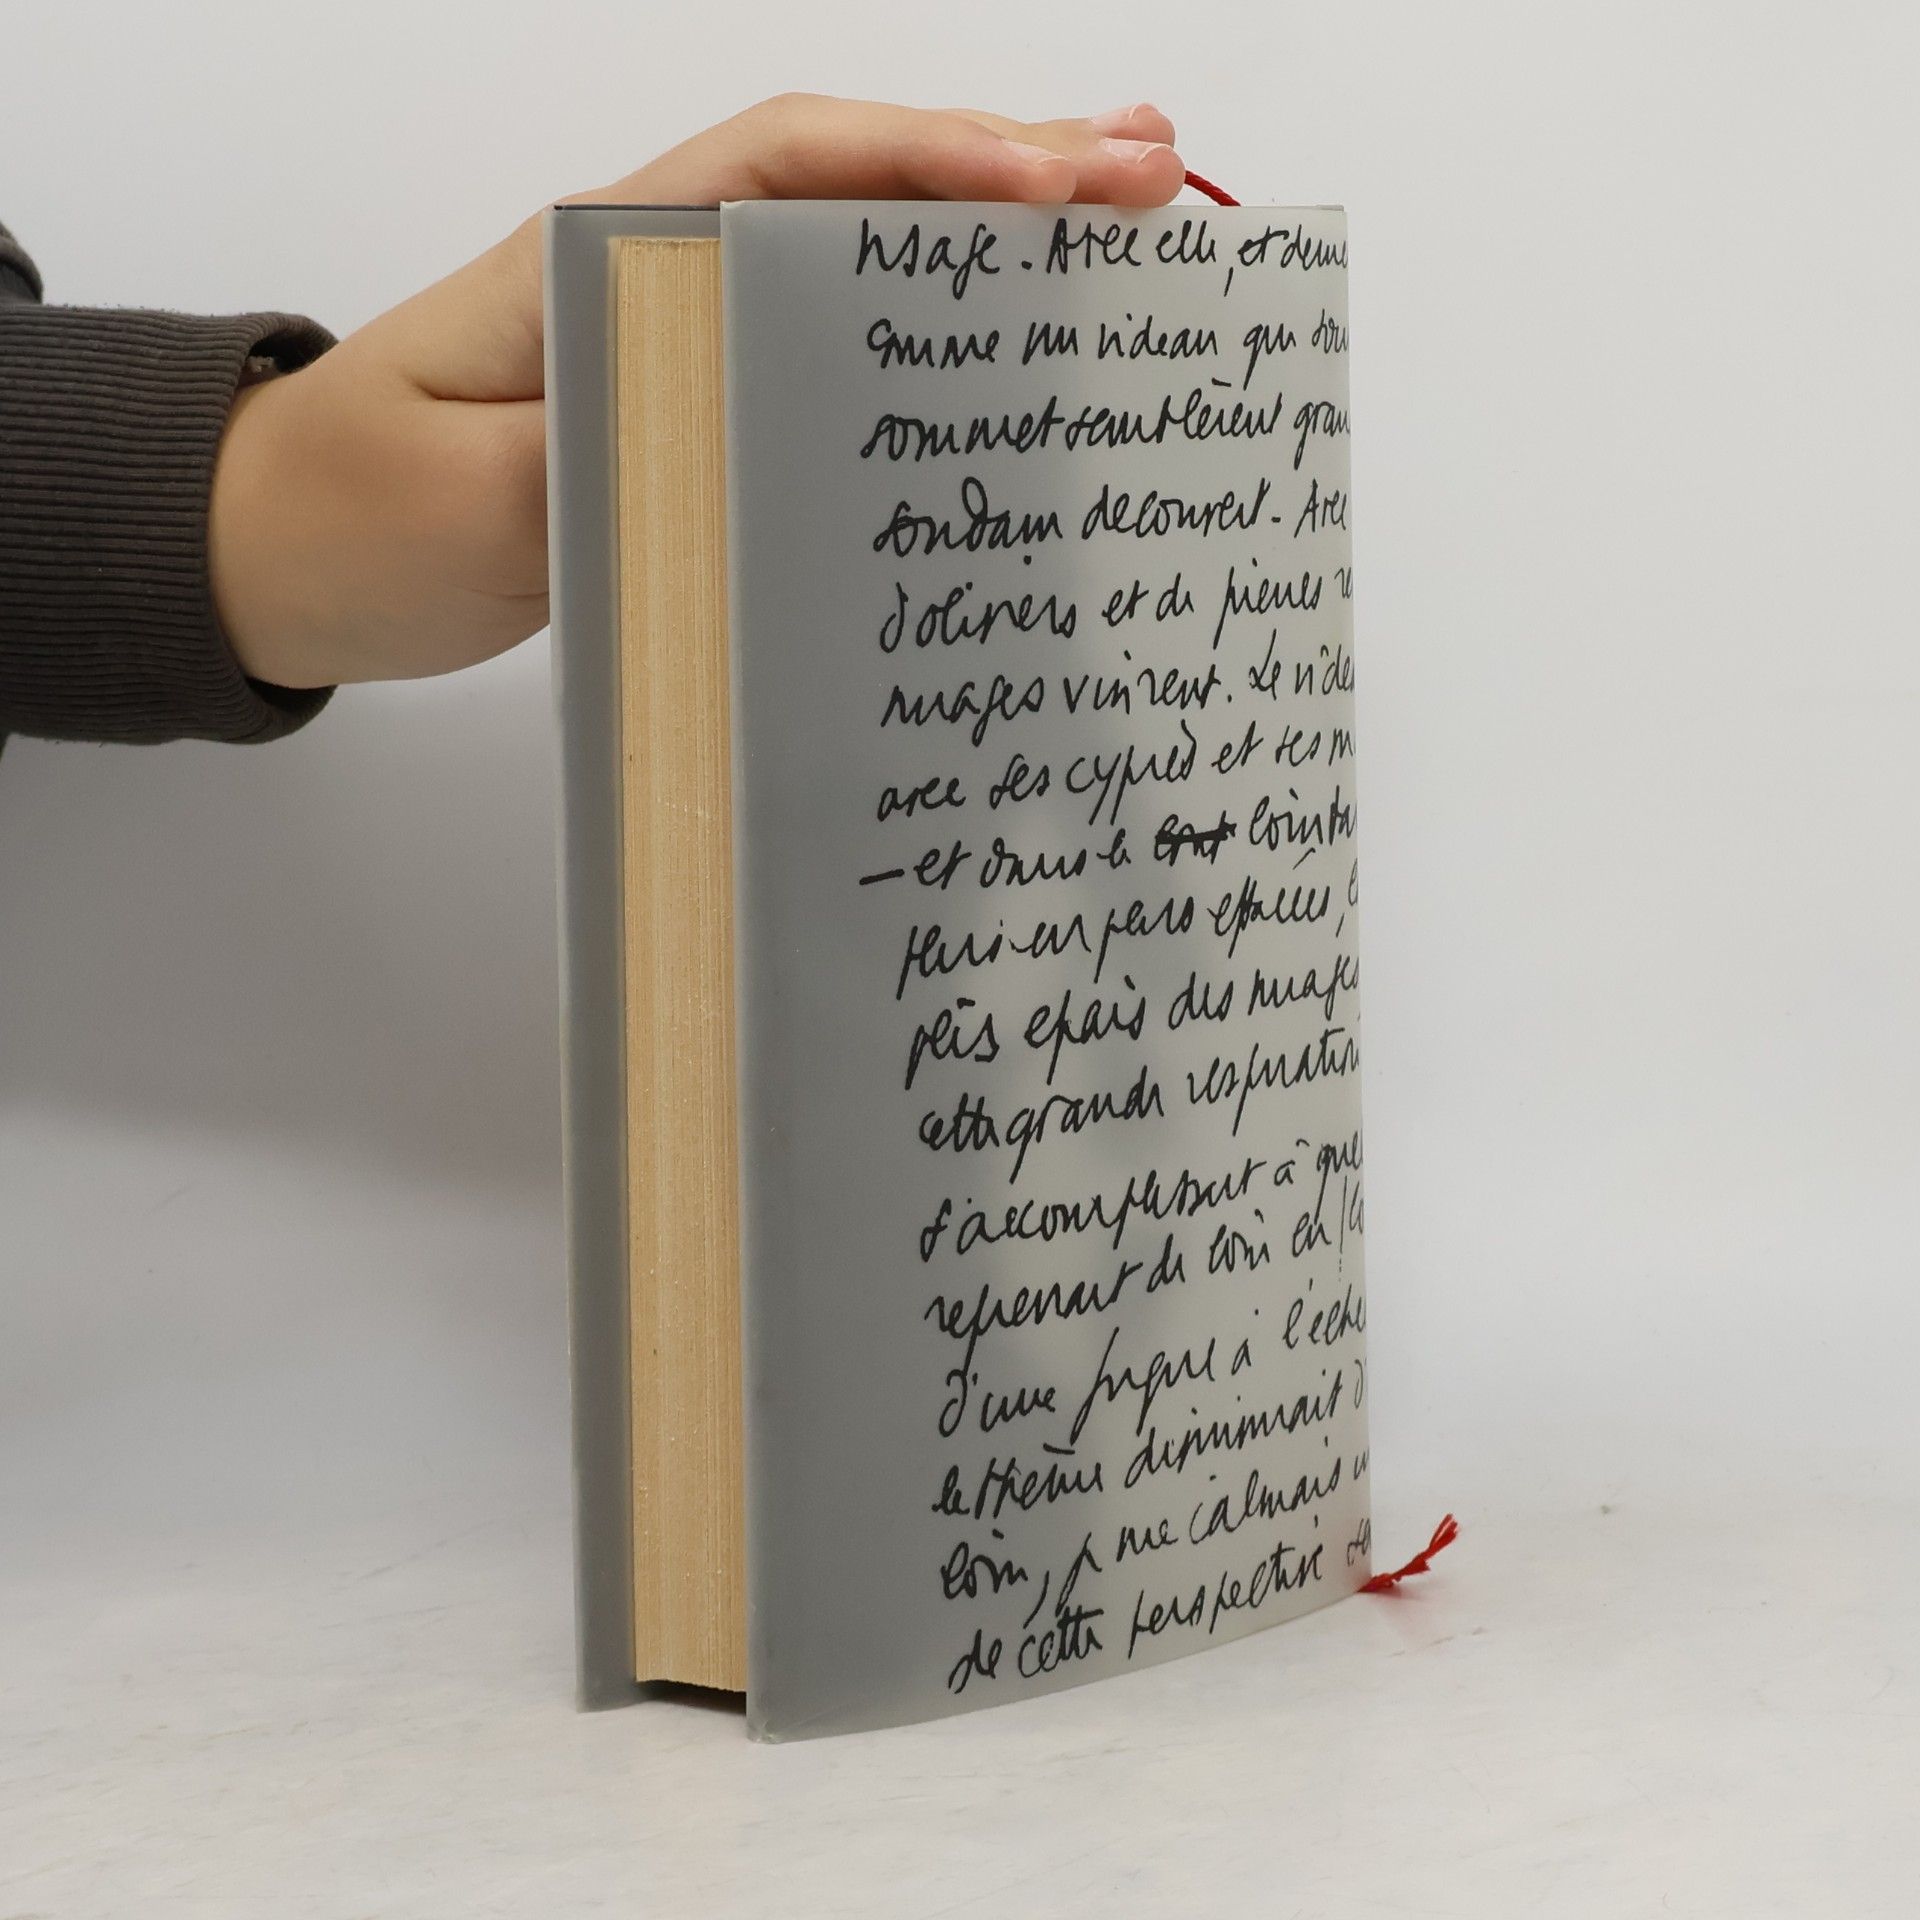 visage. Avec elle, et derriè
comme un rideau qui sou
sommet semblèrent gran
soudain découvert. Avec
d'oliviers et de pierres re
nuages vinrent. Le ride
avec ses cyprès et ses m
— et dans le lointai
plus en plus effacées,
plis épais des nuages
cette grande respiration
s'accomplissait à quel
reprenait de loin en lo
d'une fugue à l'éche
le thème diminuait d'
loin, je me calmais un
de cette perspective se